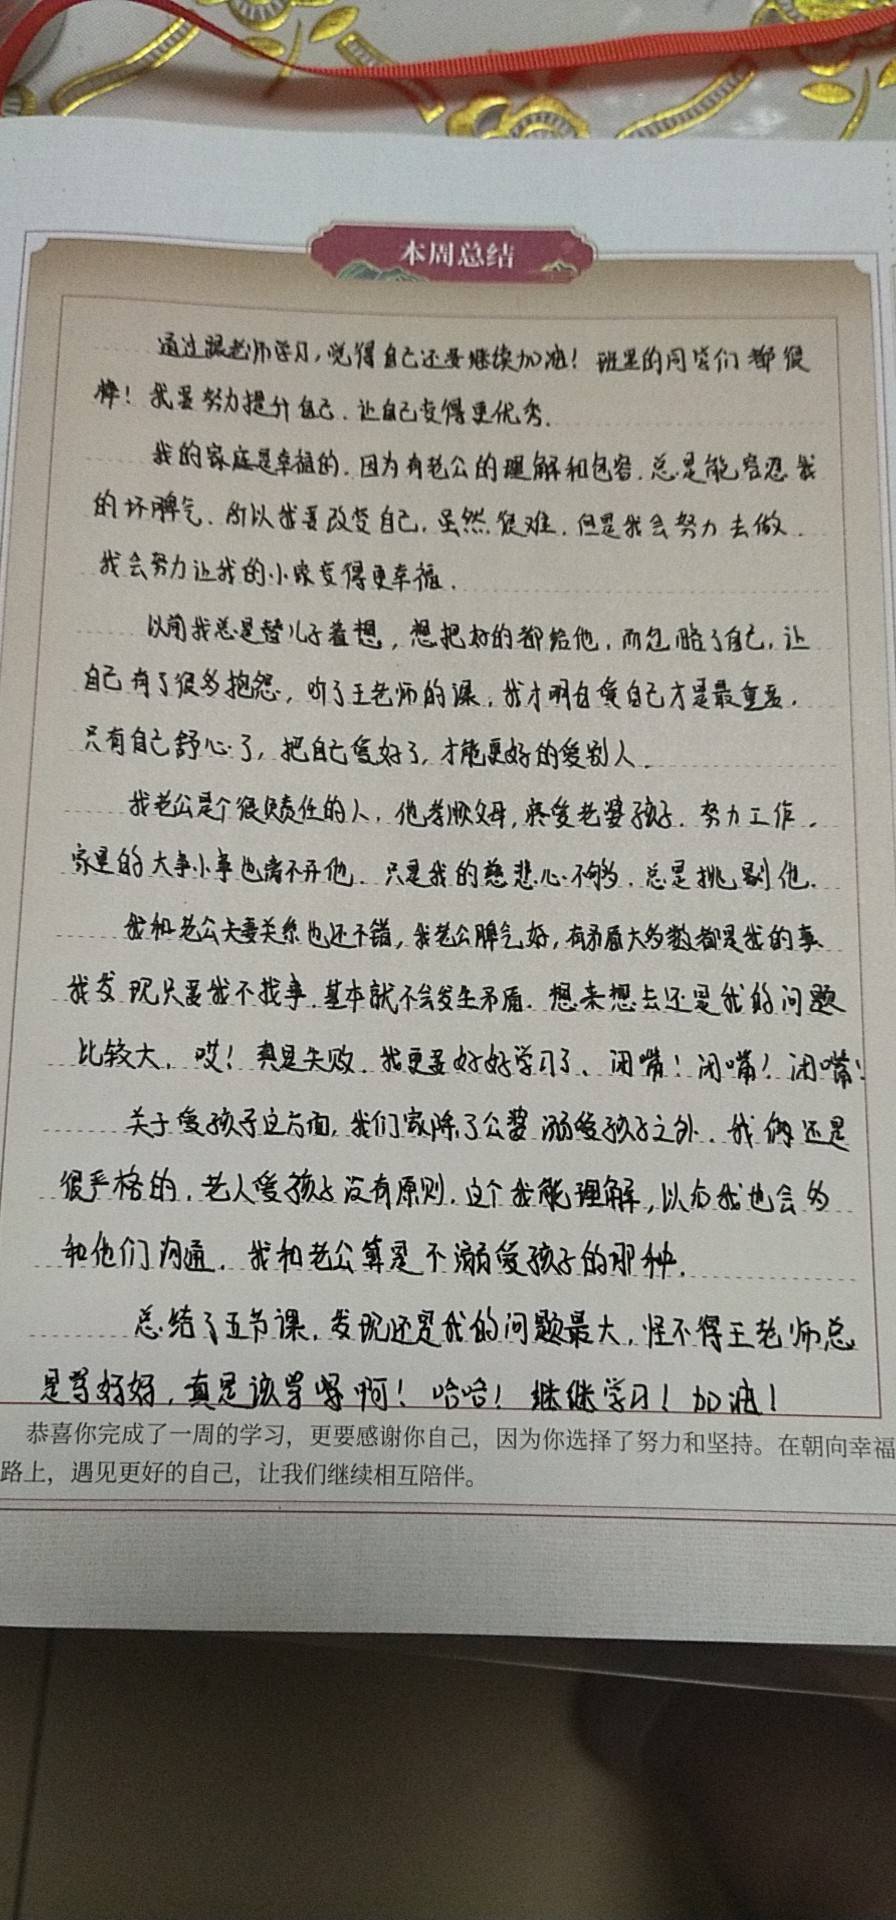 本周总结
通过跟老师学习，觉得自己还要继续加油！班里的同学们都很
棒！我要努力提升自己．让自己变得更优秀．
我的家庭是幸福的．因为有老公的理解和包容．总是能容忍我
的坏脾气．所以我要改变自己．虽然很难．但是我会努力去做．
我会努力让我的小家变得更幸福．
以前我总是替儿子着想，想把好的都给他，而忽略了自己，让
自己有了很多抱怨，听了王老师的课，我才明白爱自己才是最重要．
只有自己舒心了，把自己爱好了，才能更好的爱别人．
我老公是个很负责任的人，他孝顺父母，疼爱老婆孩子．努力工作．
家里的大事小事也离不开他．只是我的慈悲心不够，总是挑剔他．
我和老公夫妻关系也还不错，我老公脾气好，有矛盾大多数都是我的事
我发现只要我不找事．基本就不会发生矛盾．想来想去还是我的问题
比较大．哎！真是失败．我更要好好学习了、闭嘴！闭嘴！闭嘴！
关于爱孩子这方面，我们家除了公婆溺爱孩子之外．我俩还是
很严格的．老人爱孩子没有原则．这个我能理解，以后我也会多
和他们沟通．我和老公算是不溺爱孩子的那种．
总结了五节课．发现还是我的问题最大，怪不得王老师总
是骂好好，真是该骂呀啊！哈哈！继继学习！加油！
恭喜你完成了一周的学习，更要感谢你自己，因为你选择了努力和坚持。在朝向幸福
路上，遇见更好的自己，让我们继续相互陪伴。